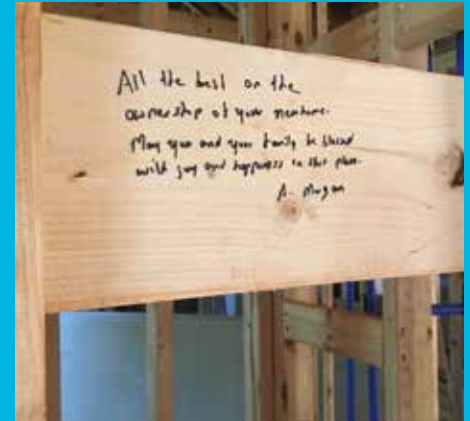 All the best on the
ownership of your new home.
May you and your family be blessed
with joy and happiness in this place.
A. Mugan